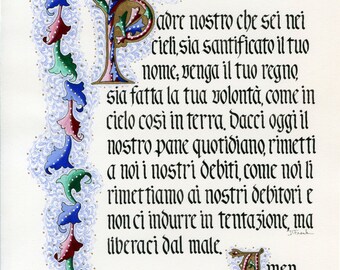 Padre nostro che sei nei
cieli, sia santificato il tuo
nome, venga il tuo regno,
sia fatta la tua volontà, come in
cielo così in terra. Dacci oggi il
nostro pane quotidiano, rimetti
a noi i nostri debiti, come noi li
rimettiamo ai nostri debitori e
non ci indurre in tentazione, ma
liberaci dal male.
Amen